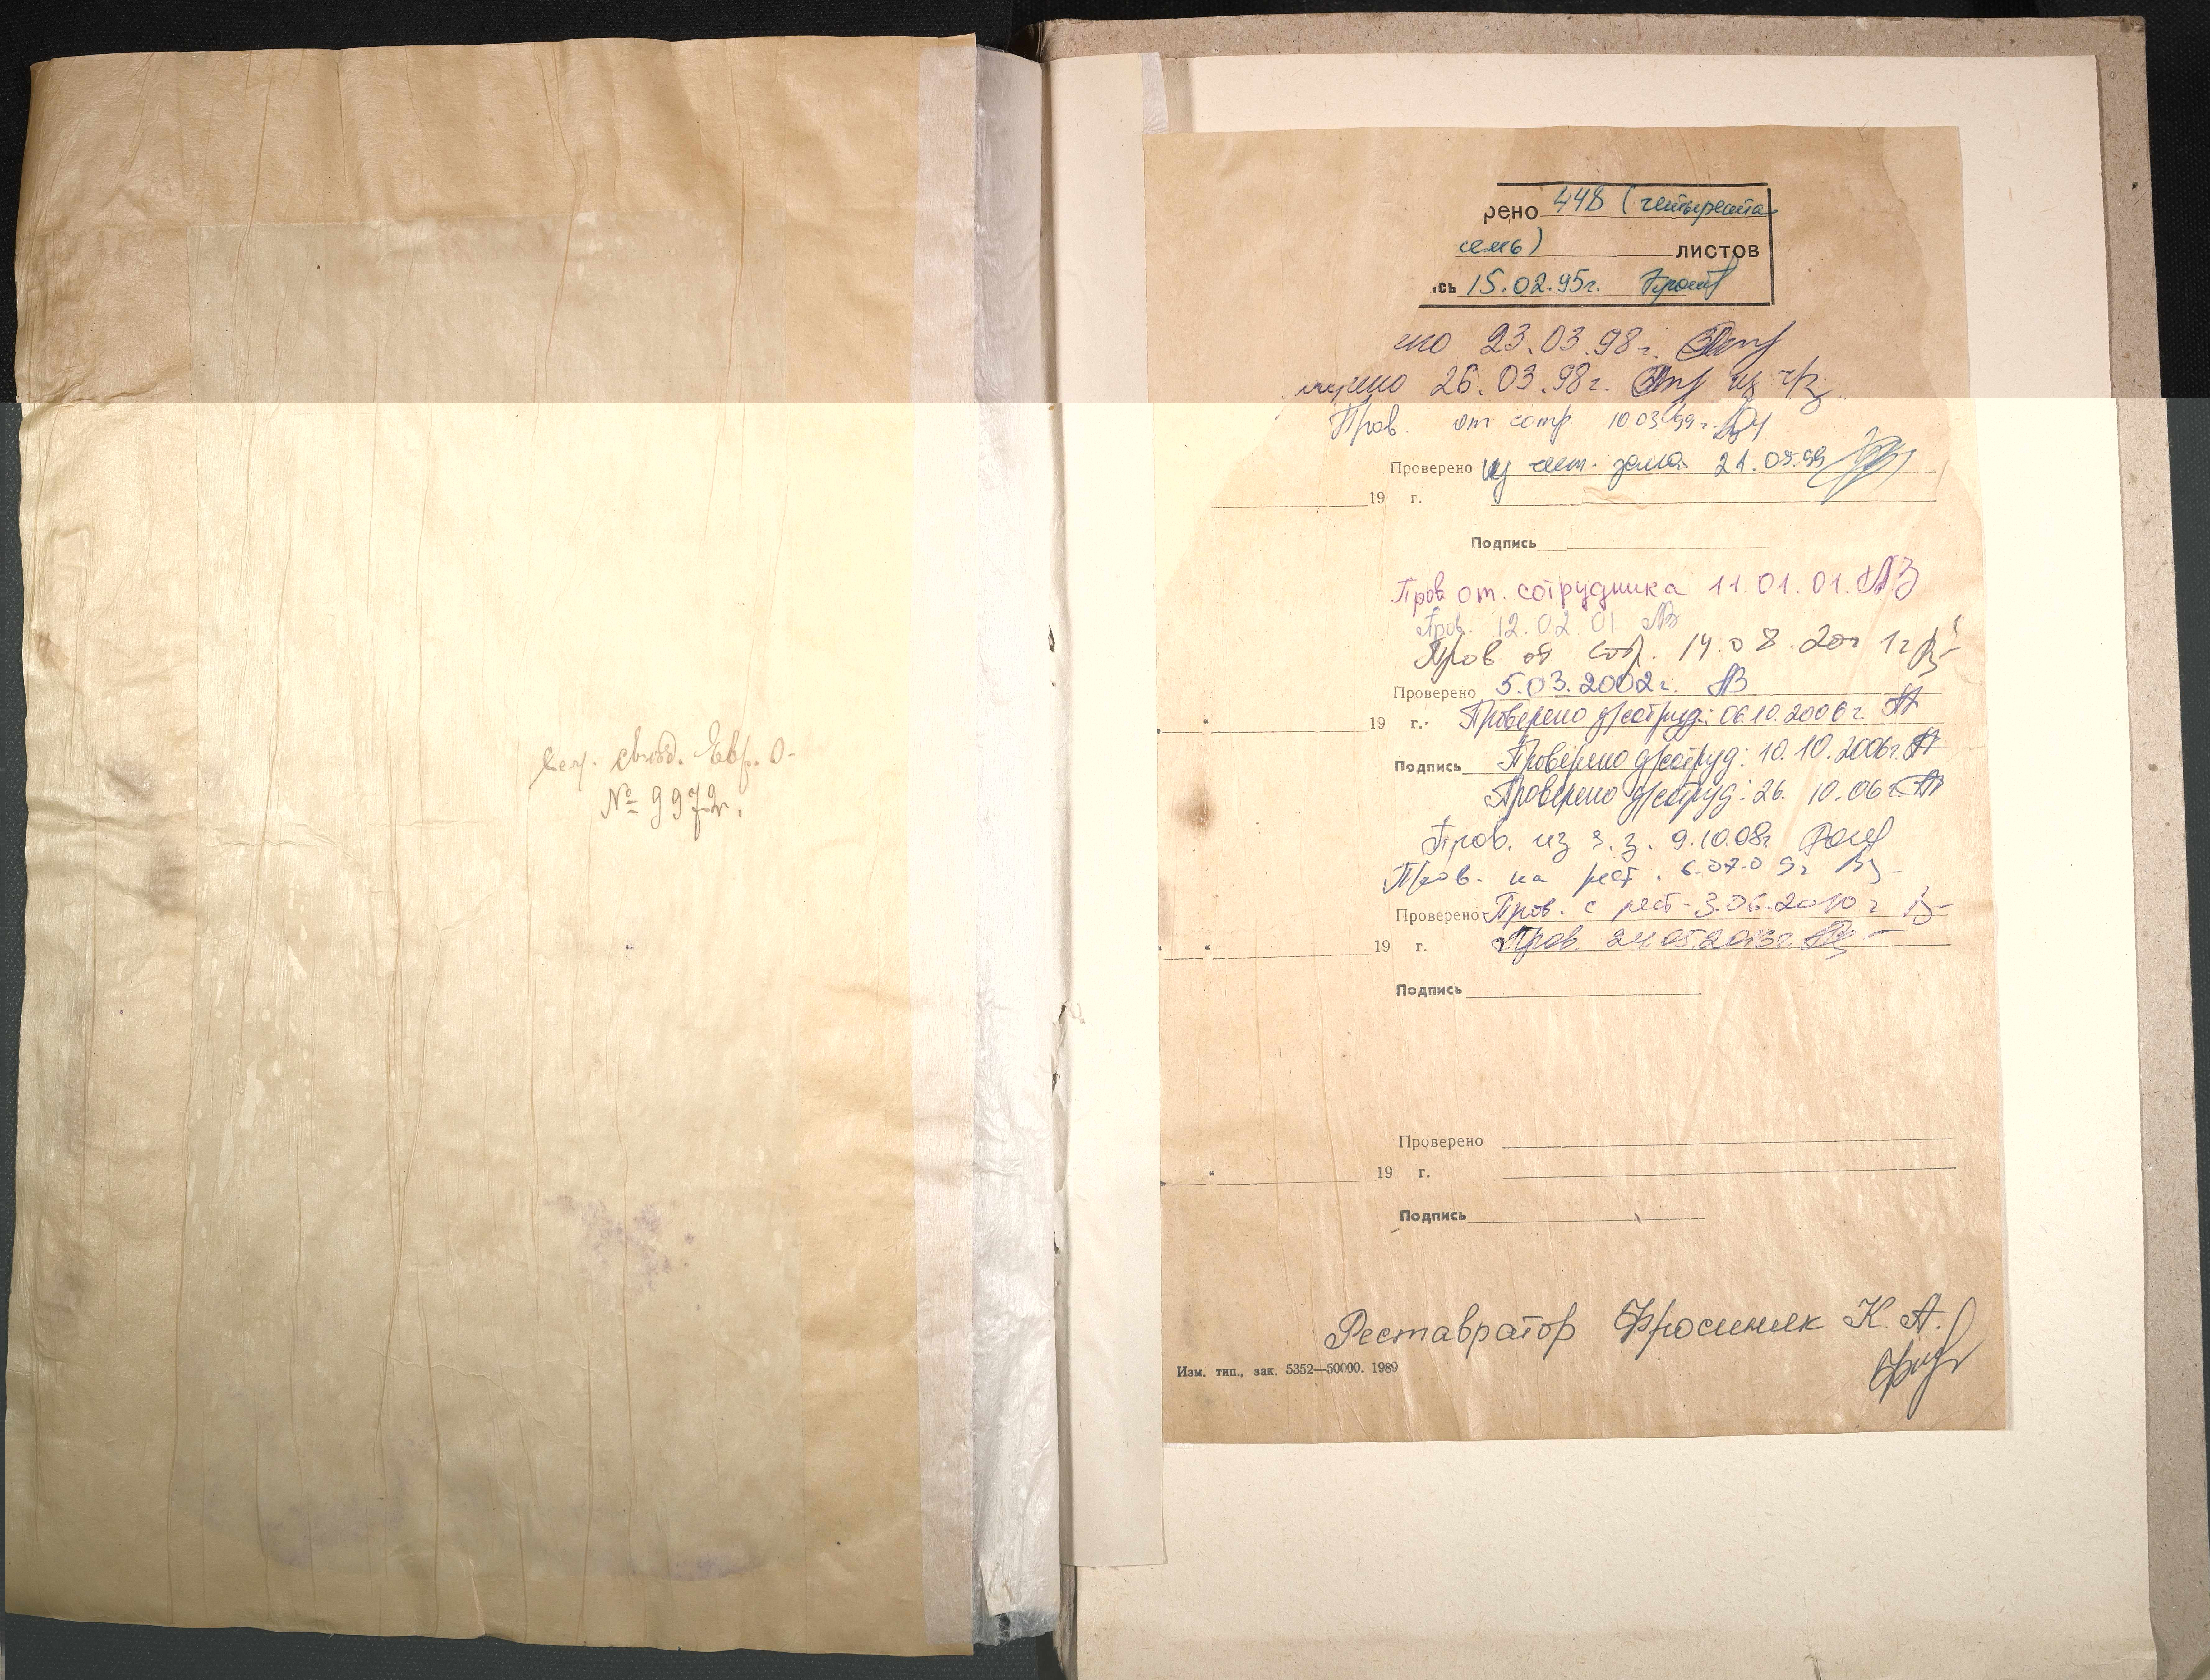 свид. Евр. О-
№ 9972.
рено 448 (четыреста
семь) листов
сь 15.02.95г.
но 23.03.98г.
26.03.98г. из чз
Пров. от сотр. 10 03 99г.
Проверено из чит. зала 21.09.99
19 г.
Подпись
Пров от. сотрудника 11.01.01. АЗ
Пров. 12.02 01 АЗ
Пров от сотр. 14.08.2001г
Проверено 5.03.2002г. АЗ
19 г. Проверено д/сотруд: 06.10.2006г.
Подпись Проверено д/сотруд: 10.10.2006г.
Проверено д/сотруд: 26.10.06г.
Пров. из ч.з. 9.10.08г
Пров. на рест. 6.07.09г
Проверено Пров. с рест- 3.06.2010г
19 г. Пров. 24 05 2013г.
Подпись
Проверено
19 г.
Подпись
Реставратор Фросиняк К. А.
Изм. тип., зак. 5352—50000. 1989